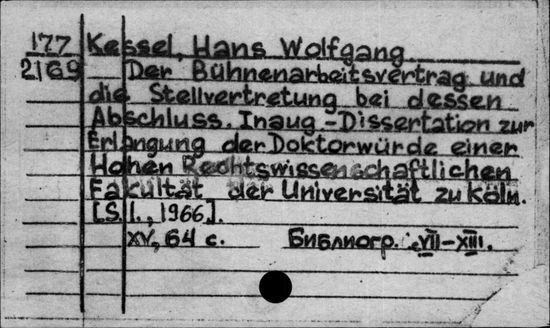 177 Kessel, Hans Wolfgang
2169 Der Bühnenarbeitsvertrag und
die Stellvertretung bei dessen
Abschluss. Inaug.-Dissertation zur
Erlangung der Doktorwürde einer
Hohen Rechtswissenschaftlichen
Fakultät der Universität zu Köln.
[S. l., 1966].
XV, 64 c. Библиогр.: c. VII-XIII.